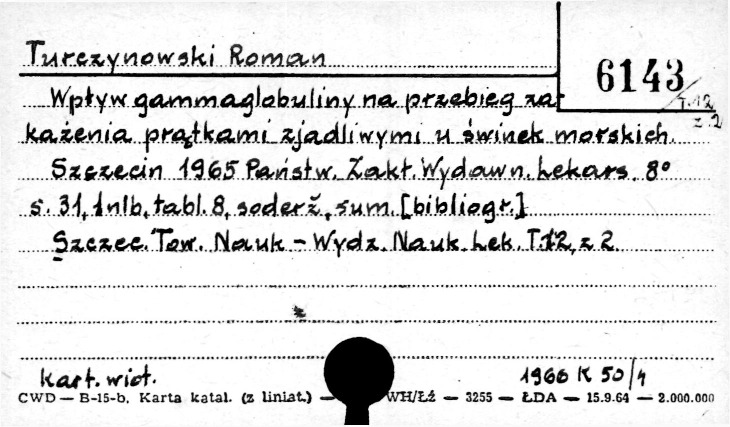 Turczynowski Roman
6143
T.12
z.2
Wpływ gammaglobuliny na przebieg za-
każenia prątkami zjadliwymi u świnek morskich.
Szczecin 1965 Państw. Zakł. Wydawn. Lekars. 8°
s. 31, 1nlb, tabl. 8, soderž, sum. [bibliogr.]
Szczec. Tow. Nauk - Wydz. Nauk Lek. T.12, z 2.
kart. wiąt.
1966 K 50/4
CWD — B-15-b. Karta katal. (z liniat.) — WH/ŁŹ — 3255 — ŁDA — 15.9.64 — 2.000.000